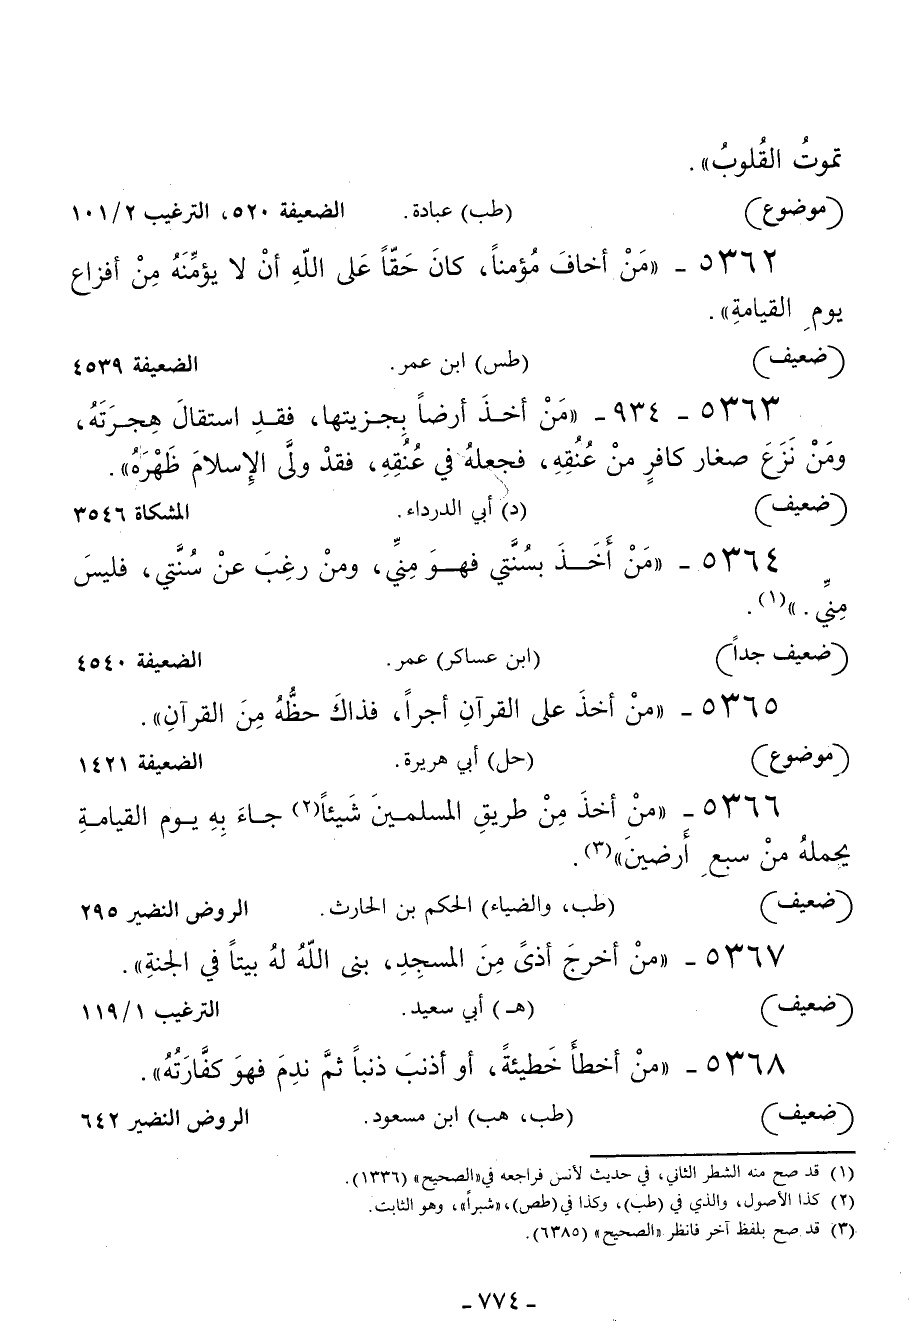 تموتُ القُلوبُ».
(موضوع) (طب) عبادة. الضعيفة ٥٢٠، الترغيب ١٠١/٢
٥٣٦٢ - «مَنْ أخافَ مُؤمناً، كانَ حَقّاً عَلى اللّهِ أنْ لا يؤمِّنَهُ مِنْ أفزاع
يومِ القيامةِ».
(ضعيف) (طس) ابن عمر. الضعيفة ٤٥٣٩
٥٣٦٣ - ٩٣٤ - «مَنْ أخـذَ أرضاً بِجـزيتها، فقـدِ استقالَ هِجـرَتَهُ،
ومَنْ نَزَعَ صغار كافرٍ منْ عُنُقِهِ، فجعلهُ في عُنُقِهِ، فقدْ ولَّى الإِسلامَ ظَهْرَهُ».
(ضعيف) (د) أبي الدرداء. المشكاة ٣٥٤٦
٥٣٦٤ - «مَنْ أَخَـــذَ بسُنَّتي فهــوَ مِنِّي، ومنْ رغِبَ عنْ سُنَّتي، فليسَ
مِنِّي. »(١).
(ضعيف جداً) (ابن عساكر) عمر. الضعيفة ٤٥٤٠
٥٣٦٥ - «منْ أخذَ على القرآنِ أجراً، فذاكَ حظُّهُ مِنَ القرآنِ».
(موضوع) (حل) أبي هريرة. الضعيفة ١٤٢١
٥٣٦٦ - «منْ أخذَ مِنْ طريقِ المسلمـينَ شَيئاً(٢) جـاءَ بِهِ يـوم القيامـةِ
يحملهُ منْ سبعِ أَرضينَ»(٣).
(ضعيف) (طب، والضياء) الحكم بن الحارث. الروض النضير ٢٩٥
٥٣٦٧ - «منْ أخرجَ أذىً مِنَ المسجدِ، بنى اللّهُ لهُ بيتاً في الجنةِ».
(ضعيف) (هـ) أبي سعيد. الترغيب ١١٩/١
٥٣٦٨ - «منْ أخطأَ خَطيئةً، أو أذنبَ ذنباً ثمَّ ندِمَ فهوَ كفَّارَتُهُ».
(ضعيف) (طب، هب) ابن مسعود. الروض النضير ٦٤٢
(١) قد صح منه الشطر الثاني، في حديث لأنس فراجعه في«الصحيح» (١٣٣٦).
(٢) كذا الأصول، والذي في (طب)، وكذا في(طص)،«شبراً»، وهو الثابت.
(٣) قد صح بلفظ آخر فانظر «الصحيح» (٦٣٨٥).
- ٧٧٤ -